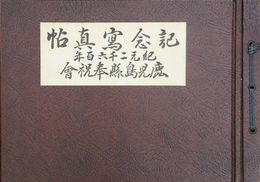 帖真寫念記
年百六千二元紀
會祝奉縣島兒鹿